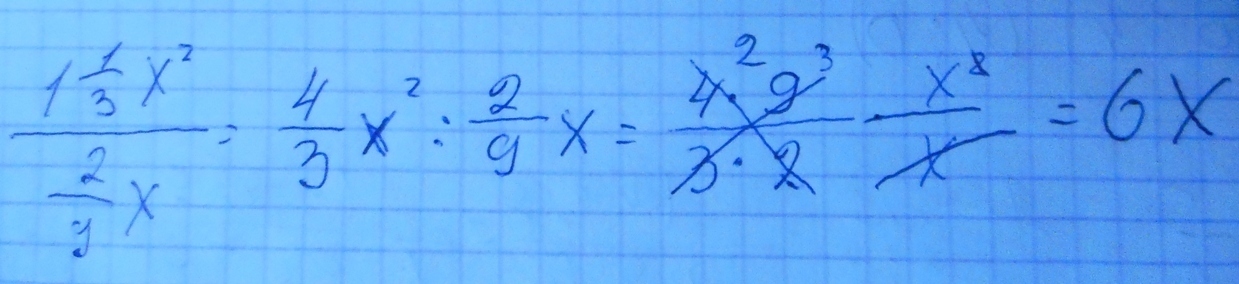 \frac{1\frac{1}{3}x^2}{\frac{2}{9}x} = \frac{4}{3}x^2 : \frac{2}{9}x = \frac{4^2 \cdot 9^3}{3 \cdot 2} \frac{x^8}{x} = 6x